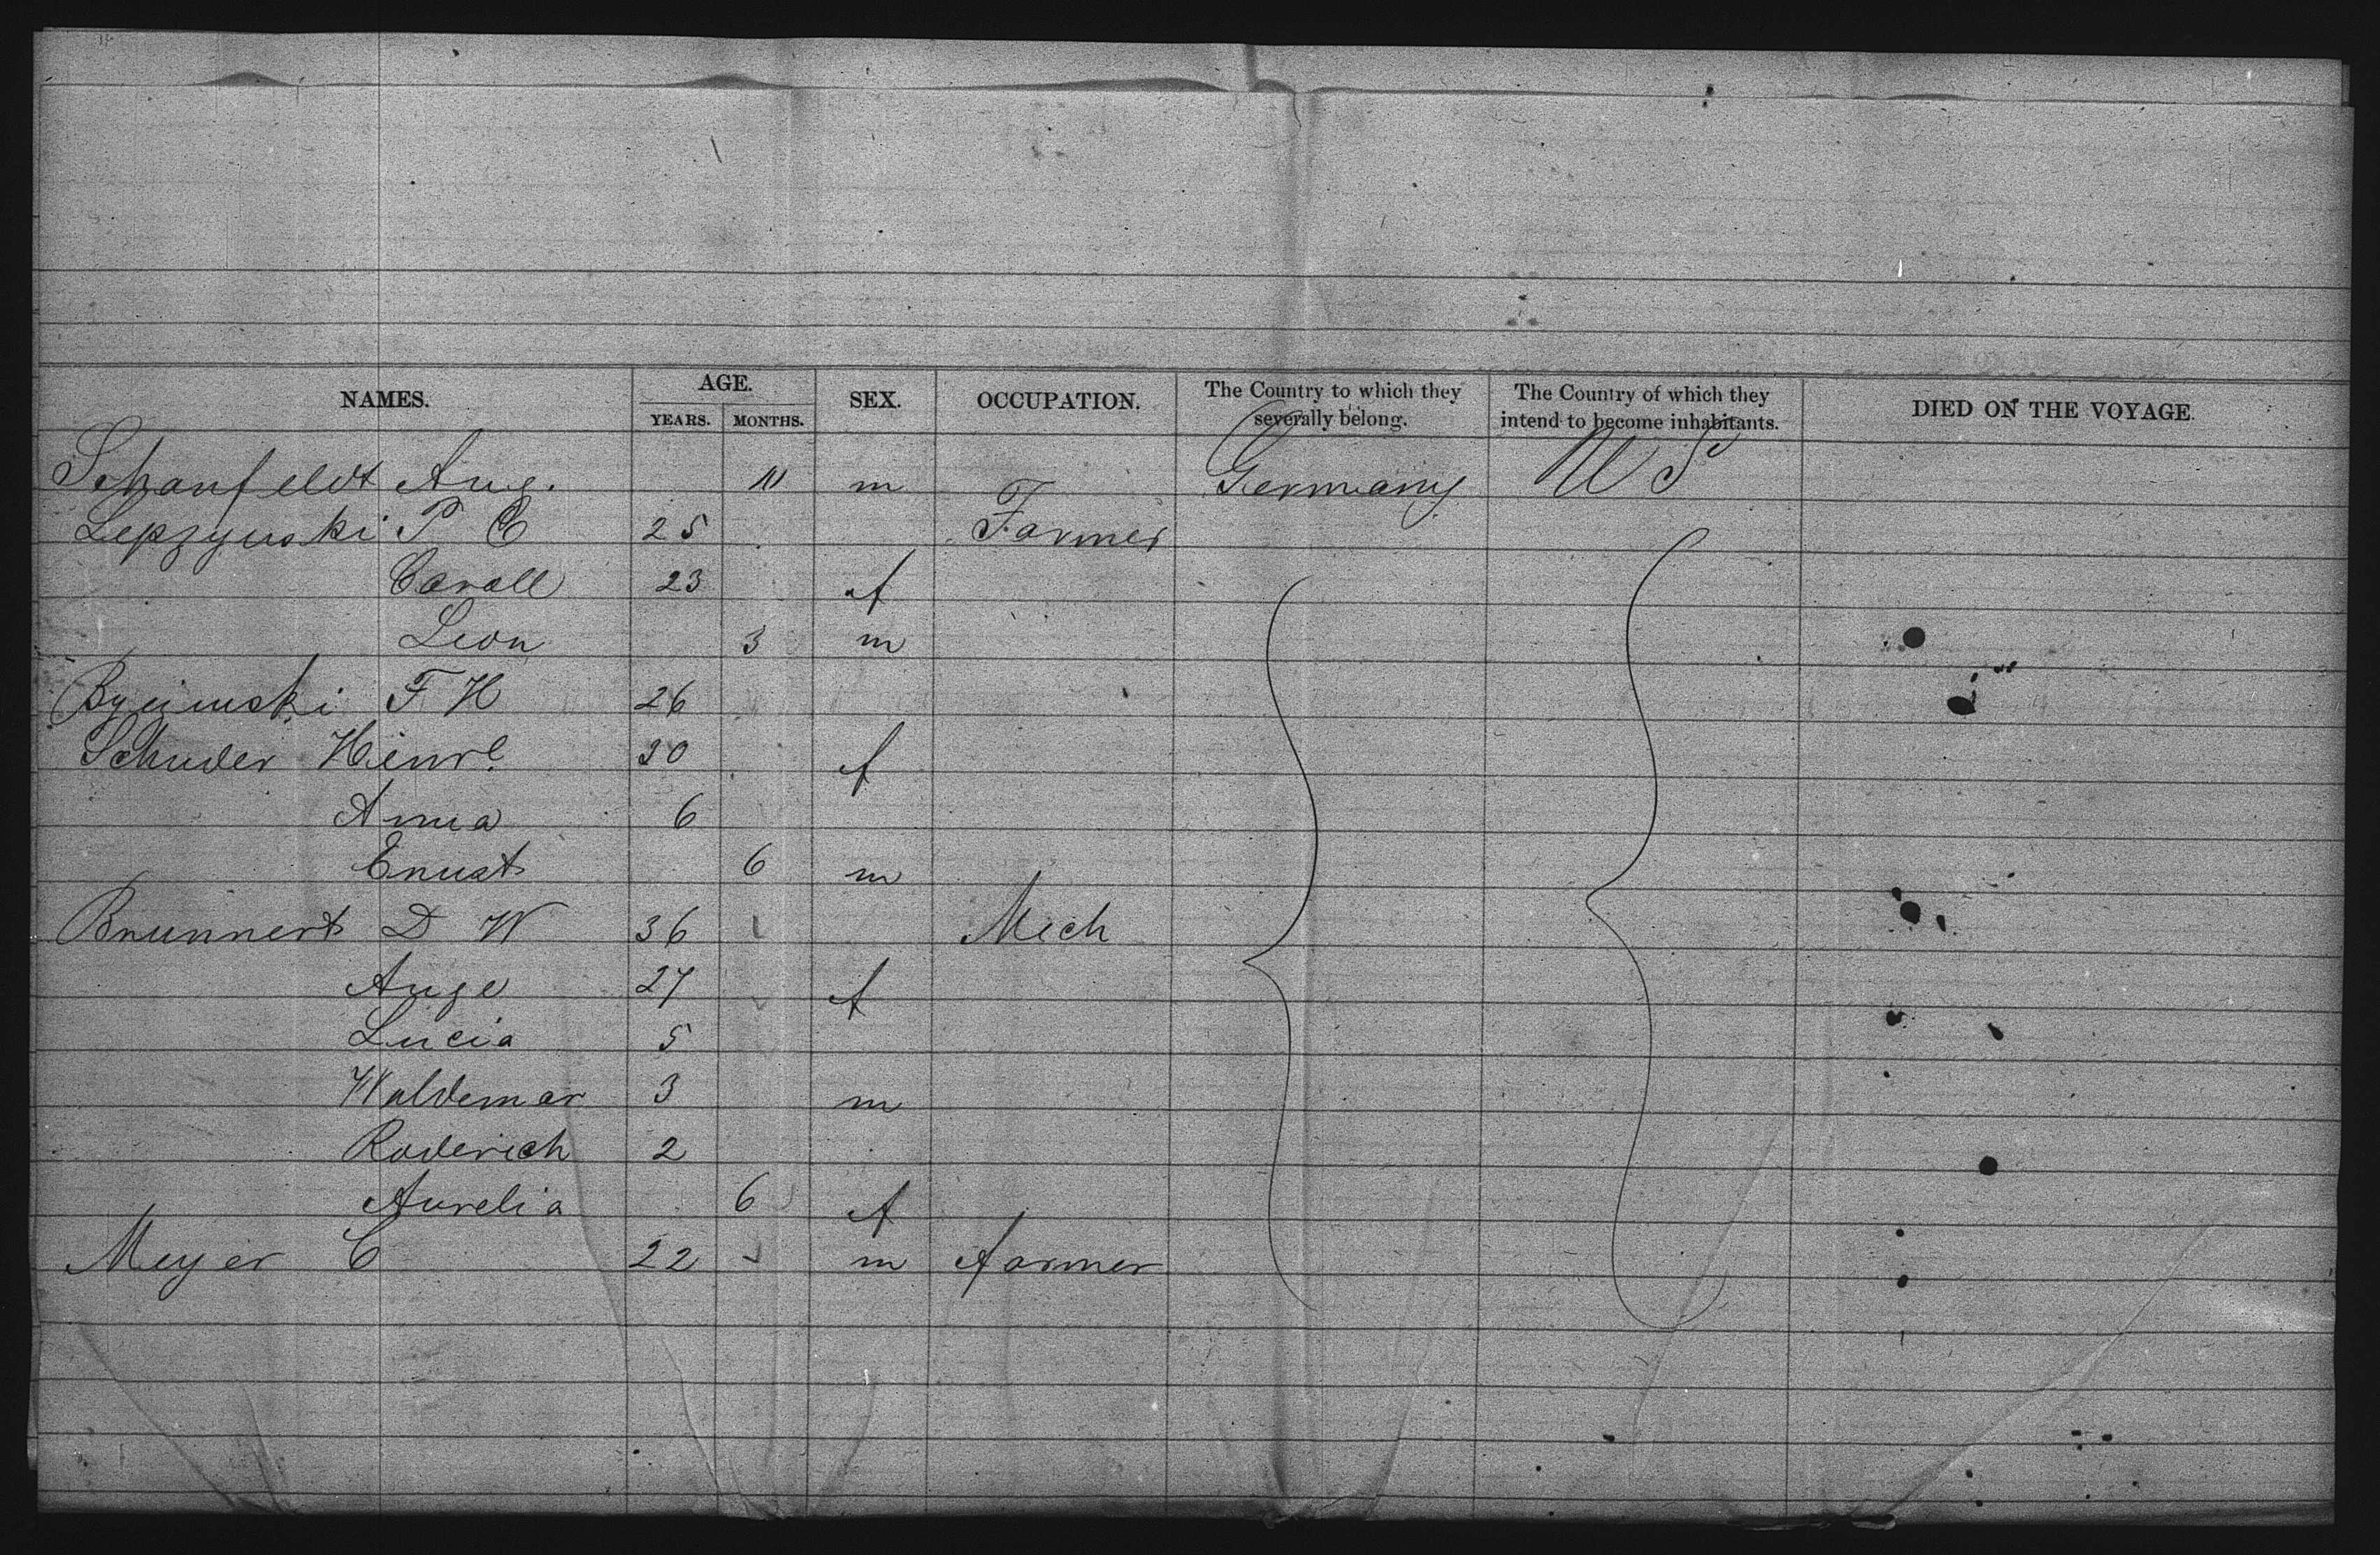 NAMES. AGE. SEX. OCCUPATION. The Country to which they severally belong. The Country of which they intend to become inhabitants. DIED ON THE VOYAGE.
YEARS. MONTHS.
Schonfeldt Aug. 11 m Germany U S
Lepzynski P C 25 Farmer
Caroll 23 f
Leon 3 m
F H 26
Schuder Henrt. 30 f
Anna 6
Ernst 6 m
Brunnert D W 36 Mech
Auge 27 f
Lucia 5
Waldemar 3 m
Roderich 2
Aurelia 6 f
Meyer C 22 m farmer